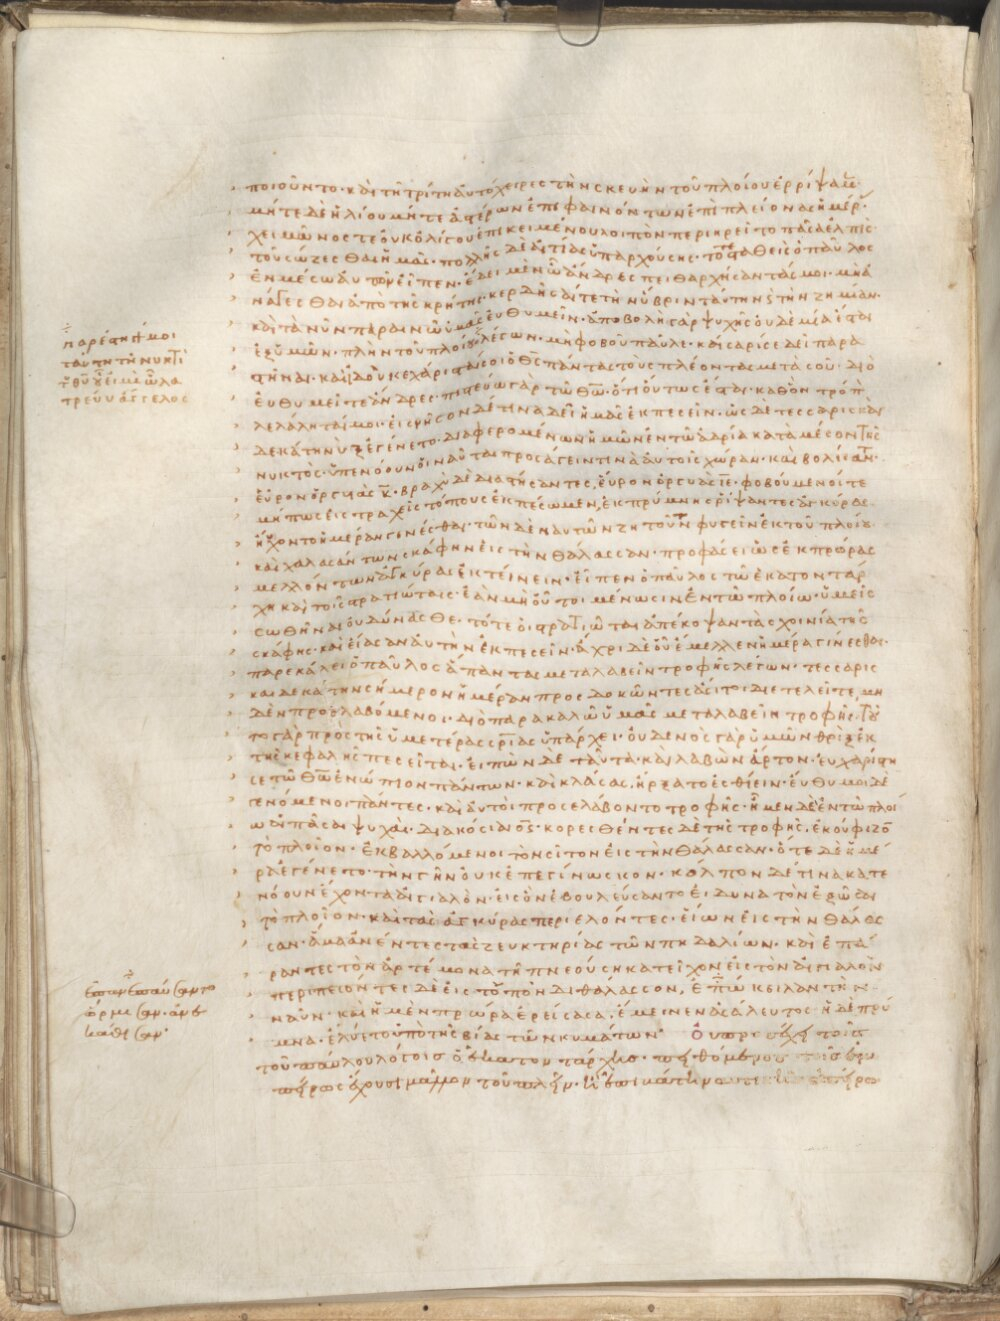 παρέστη γάρ μοι
ταύτη τῆ νυκτὶ
τοῦ θῦ οὗ εἰμὶ ὧ λα
τρεύω ἄγγελος
ποιοῦντο· καὶ τῆ τρίτη αὐτόχειρες τὴν σκευὴν τοῦ πλοίου ἐρρίψαμ̅·
μήτε δὲ ἡλίου μήτε ἄστρων ἐπιφαινόντων ἐπὶ πλείονας ἡμέρ·
χειμῶνος τε οὐκ ὀλίγου ἐπικειμένου λοιπὸν περιηρεῖτο πᾶσα ἐλπὶς
τοῦ σώζεσθαι ἡμᾶς· πολλῆς δὲ ἀσιτίας ὑπαρχούσης· τότε σταθεὶς ὁ παῦλος
ἐν μέσω αὐτῶν εἶπεν· ἔδει μὲν ὦ ἄνδρες πειθαρχήσαντάς μοι· μὴ ἀ
νάγεσθαι ἀπὸ τῆς κρήτης· κερδῆσαί τε τὴν ὕβριν ταύτην ϛ τὴν ζημίαν·
καὶ τὰ νῦν παραινῶ ὑμᾶς εὐθυμεῖν· ἀποβολὴ γὰρ ψυχῆς οὐδεμία ἔσται
ἐξ ὑμῶν· πλὴν τοῦ πλοίου λέγων· μὴ φοβοῦ παῦλε· καίσαρί σε δεῖ παρα
στῆναι· καὶ ἰδοὺ κεχάρισταί σοι ὁ θς πάντας τοὺς πλέοντας μετὰ σοῦ· διὸ
εὐθυμεῖτε ἄνδρες· πιστεύω γὰρ τῶ θω· ὅτι οὕτως ἔσται· καθ' ὃν τρόπ
λελάληταί μοι· εἰς νῆσον δέ τινα δεῖ ἡμᾶς ἐκπεσεῖν· ὡς δὲ τεσσαρισκαι
δεκάτη νὺξ ἐγένετο· διαφερομένων ἡμῶν ἐν τῶ ἀδρία κατὰ μέσον τῆς
νυκτὸς· ὑπενόουν οἱ ναῦται προσάγειν τινὰ αὐτοῖς χώραν· καὶ βολίσαντ·
εὗρον ὀργυιὰς κ· βραχὺ δὲ διαστήσαντες, εὗρον ὀργυιὰς ιε· φοβούμενοί τε
μήπως εἰς τραχεῖς τόπους ἐκπέσωμεν, ἐκ πρύμνης ῥίψαντες ἀγκύρας
ηὔχοντο ἡμέραν γενέσθαι· τῶν δὲ ναυτῶν ζητούντων φυγεῖν ἐκ τοῦ πλοίου
καὶ χαλασάντων σκάφην εἰς τὴν θάλασσαν· προφάσει ὡς ἐκ πρώρας
μελλόντων ἀγκύρας ἐκτείνειν· εἶπεν ὁ παῦλος τῶ ἑκατοντάρ
χη καὶ τοῖς στρατιώταις· ἐὰν μὴ οὗτοι μένωσιν ἐν τῶ πλοίω· ὑμεῖς
σωθῆναι οὐ δύνασθε· τότε οἱ στρατιῶται ἀπέκοψαν τὰ σχοινία τῆς
σκάφης· καὶ εἴασαν αὐτὴν ἐκπεσεῖν· ἄχρι δὲ οὗ ἔμελλεν ἡμέρα γίνεσθαι·
παρεκάλει ὁ παῦλος ἅπαντας μεταλαβεῖν τροφῆς λέγων· τεσσαρισ
καιδεκάτην σήμερον ἡμέραν προσδοκῶντες ἄσιτοι διετελεῖτε, μη
δὲν προσλαβόμενοι· διὸ παρακαλῶ ὑμᾶς μεταλαβεῖν τροφῆς· τοῦ
το γὰρ πρὸς τῆς ὑμετέρας σριας ὑπάρχει· οὐδενὸς γὰρ ὑμῶν θρὶξ ἐκ
τῆς κεφαλῆς πεσεῖται· εἰπὼν δὲ ταῦτα· καὶ λαβὼν ἄρτον· εὐχαρίστη
σε τῶ θω ἐνώπιον πάντων· καὶ κλάσας, ἤρξατο ἐσθίειν· εὔθυμοι δὲ
γενόμενοι πάντες· καὶ αὐτοὶ προσελάβοντο τροφῆς· ἦμεν δὲ ἐν τῶ πλοί
ω αἱ πᾶσαι ψυχαὶ· διακόσιαι οϛ· κορεσθέντες δὲ τῆς τροφῆς, ἐκούφιζο̅
τὸ πλοῖον· ἐκβαλλόμενοι τὸν σῖτον εἰς τὴν θάλασσαν· ὅτε δὲ ἡμέ
ρα ἐγένετο· τὴν γῆν οὐκ ἐπεγίνωσκον· κόλπον δέ τινα κατε
νόουν ἔχοντα αἰγιαλὸν· εἰς ὃν ἐβουλεύσαντο εἰ δυνατὸν ἐξῶσαι
τὸ πλοῖον· καὶ τὰς ἀγκύρας περιελόντες· εἴων εἰς τὴν θάλασ
σαν· ἅμα ἀνέντες τὰς ζευκτηρίας τῶν πηδαλίων· καὶ ἐπά
ραντες τὸν ἀρτέμονα τῆ πνεούση κατεῖχον εἰς τὸν αἰγιαλὸν
περιπεσόντες δὲ εἰς τόπον διθάλασσον, ἐπώκειλαν τὴν
ναῦν· καὶ ἡ μὲν πρώρα ἐρείσασα, ἔμεινεν ἀσάλευτος· ἡ δὲ πρύ
μνα· ἐλύετο ὑπὸ τῆς βίας τῶν κυμάτων·
τοῦ παύλου λόγοις ὁ ἑκατοντάρχης·